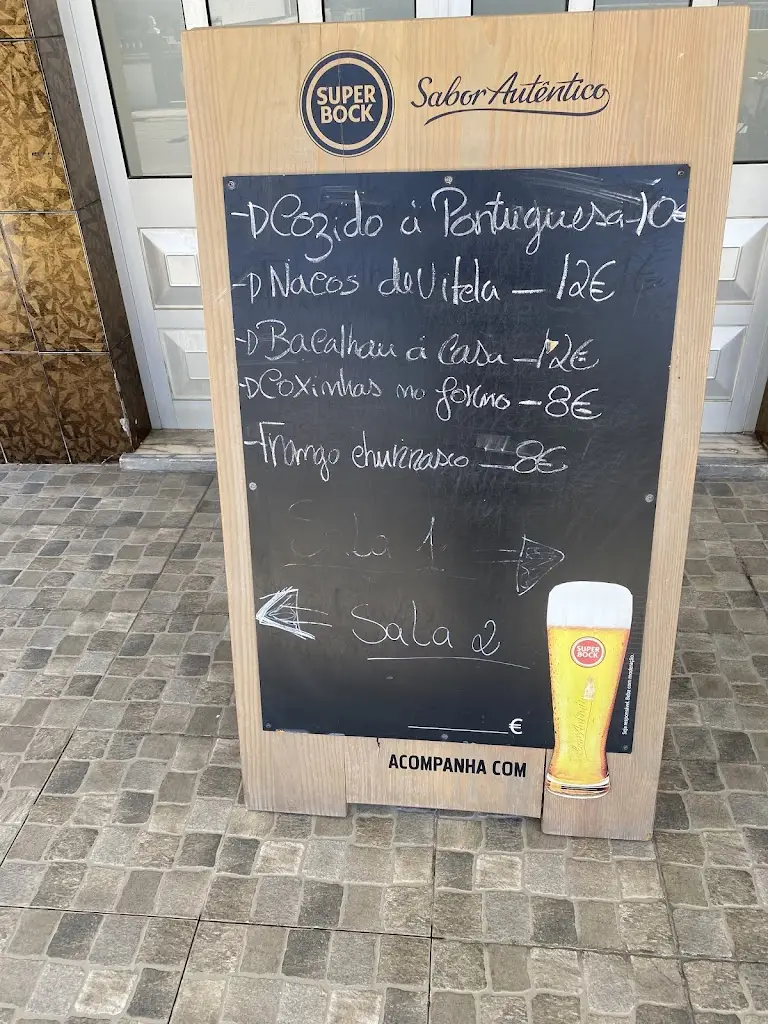 SUPER
BOCK
Sabor Autêntico
Cozido á Portuguesa - 10€
Nacos de Vitela - 12€
Bacalhau á casa - 12€
Coxinhas no forno - 8€
- Frango churrasco - 8€
Sala 1
Sala 2
€
SUPER
BOCK
Seja responsável. Beba com moderação.
ACOMPANHA COM